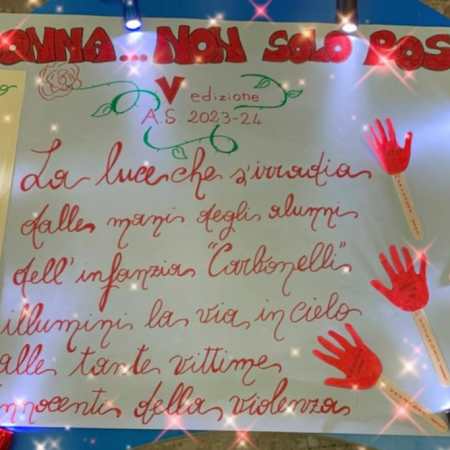 ONNA... NON SOLO ROS
V edizione
A.S 2023-24
La luce che s'irradia
dalle mani degli alunni
dell'infanzia "Carbonelli"
illumini la via in cielo
alle tante vittime
innocenti della violenza